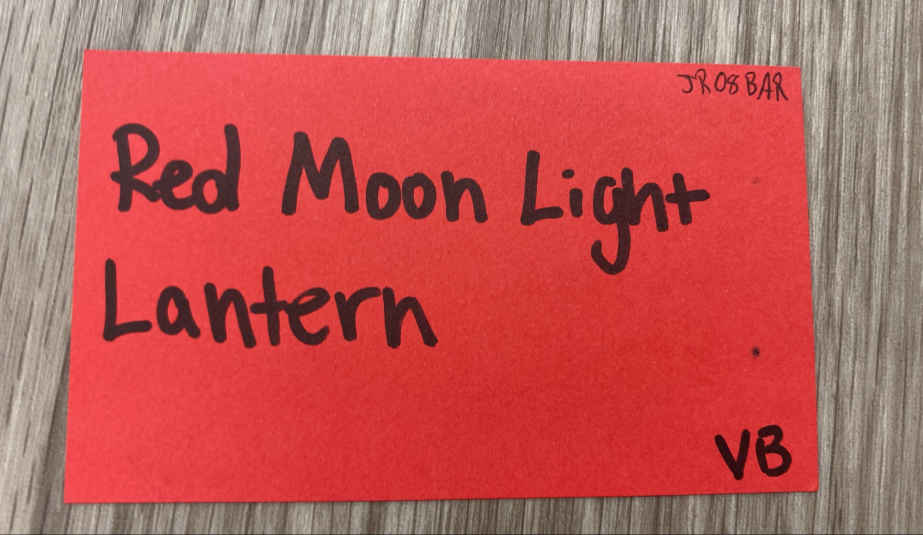 JR08BAR
Red Moon Light
Lantern
VB